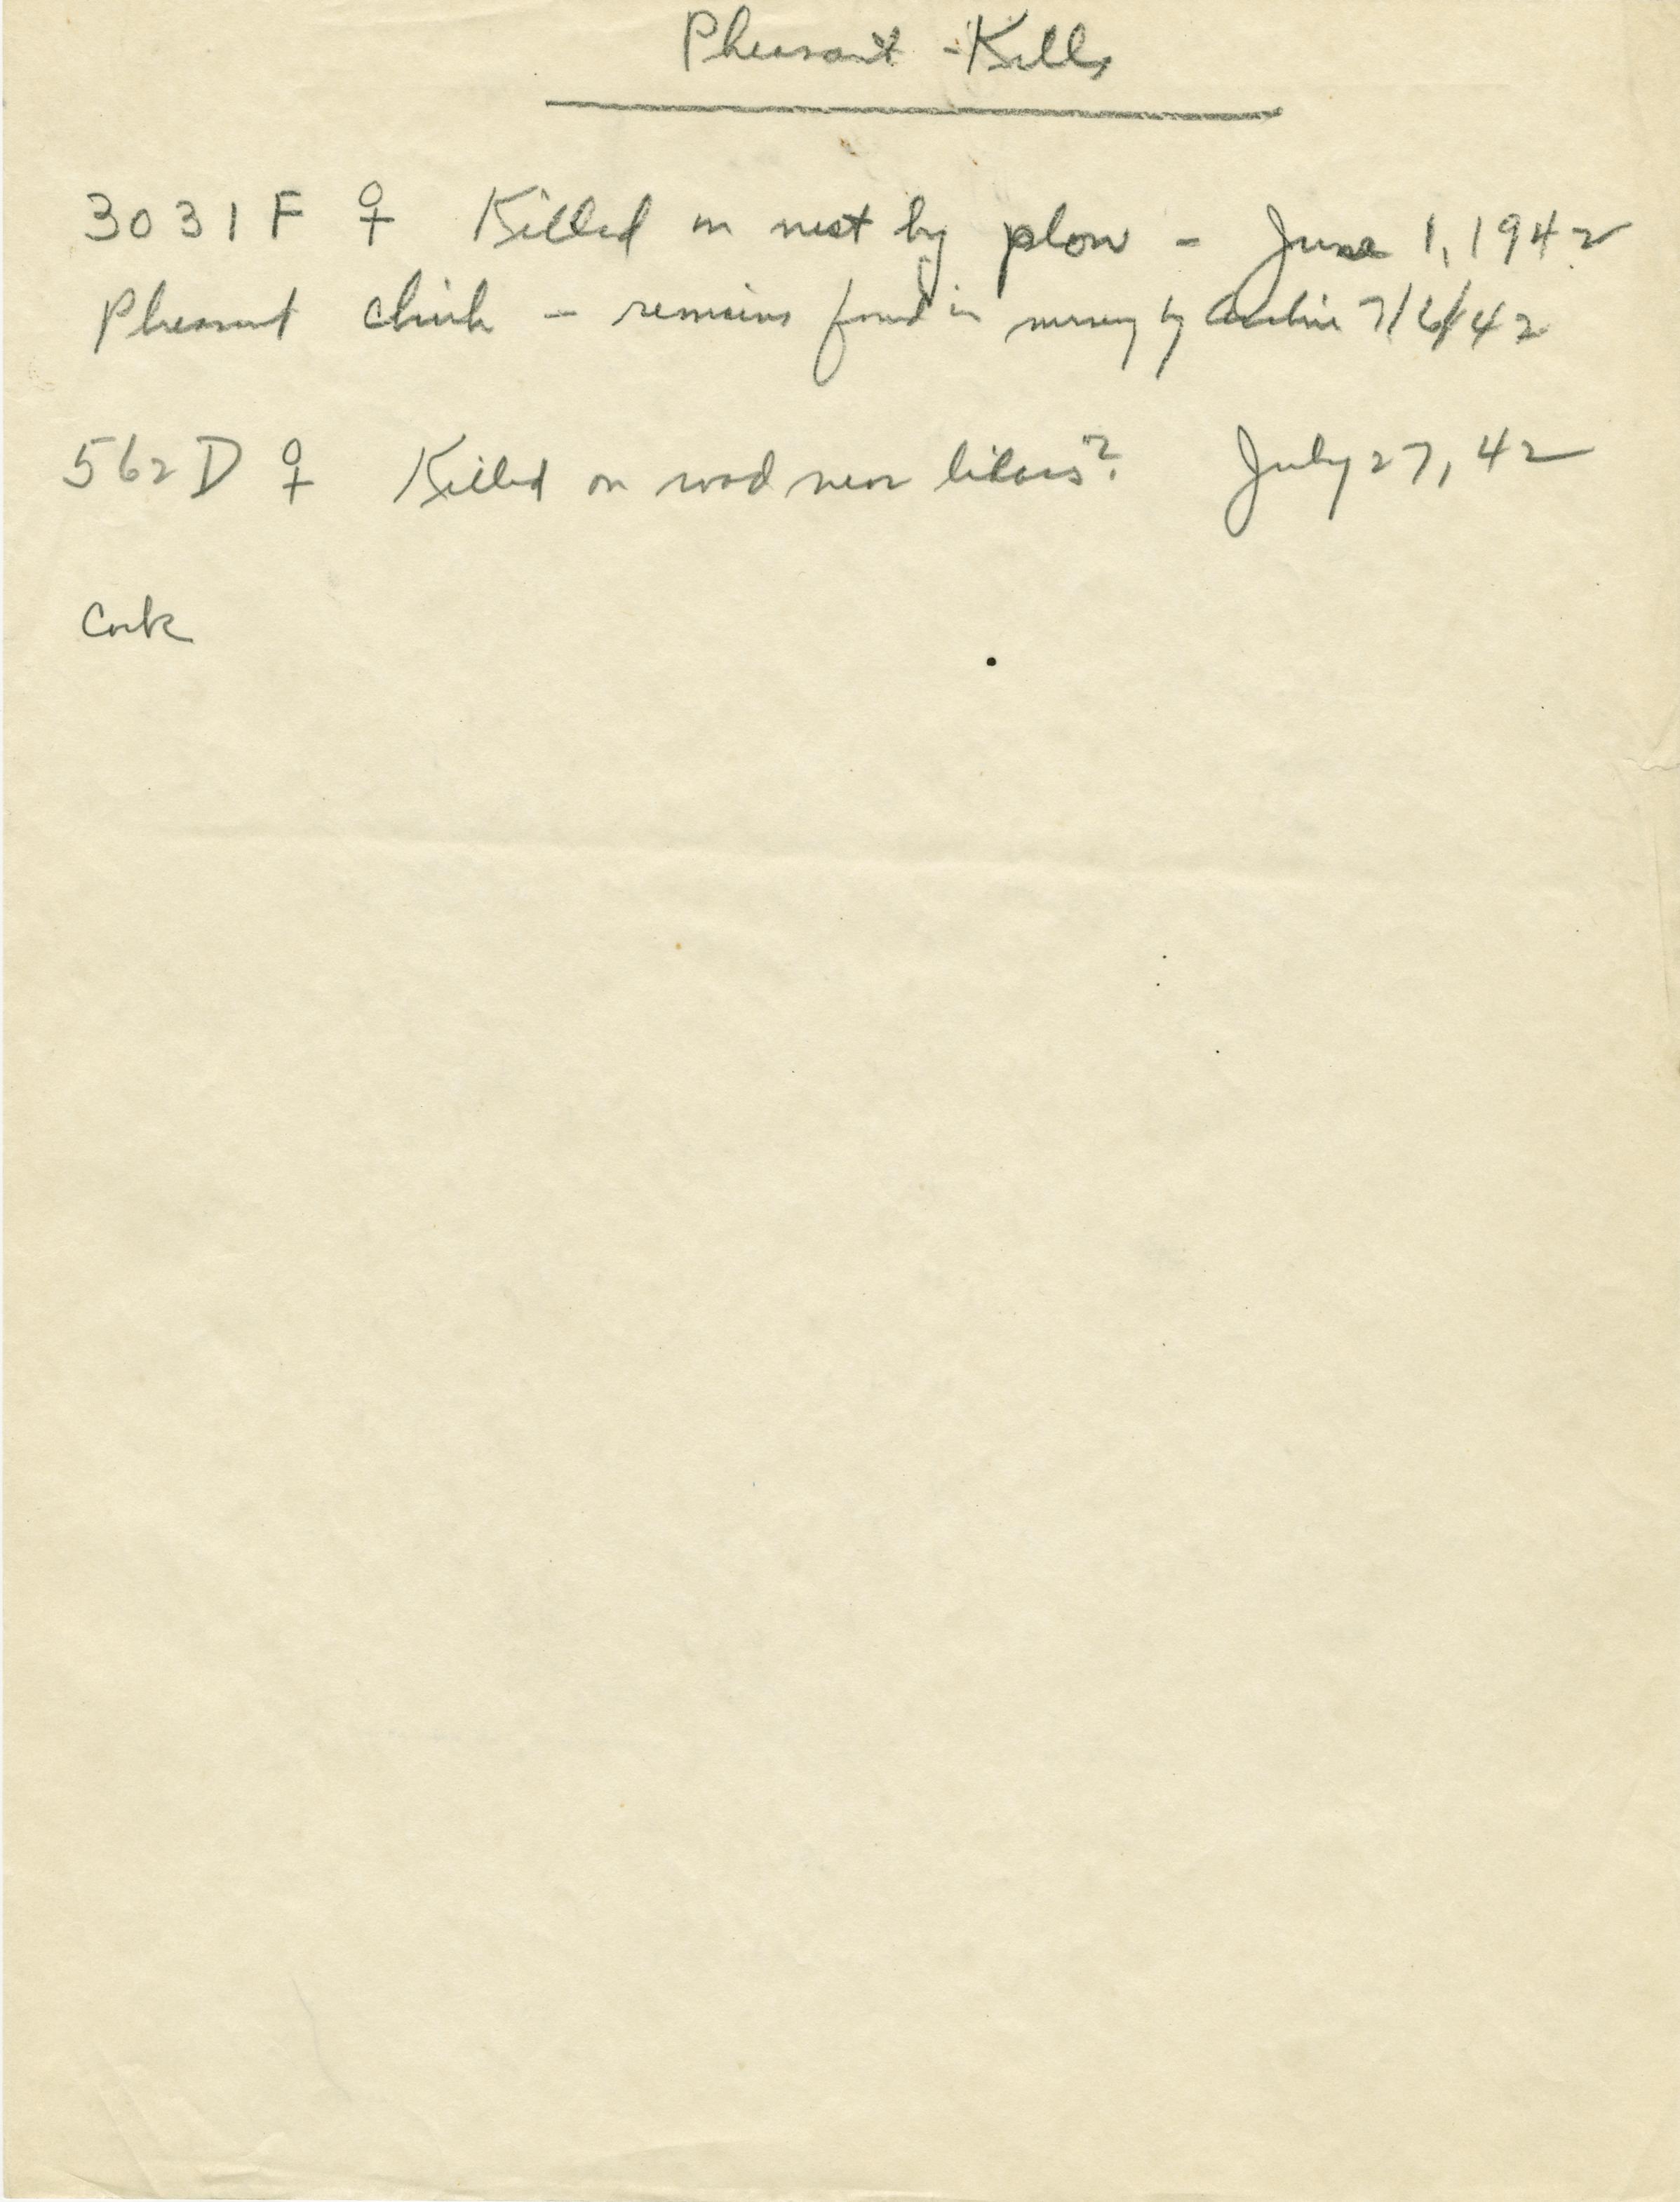 Pheasant - Kills
3031F ♀ Killed on nest by plow - June 1, 1942
Pheasant chick - remains found in nursery by 7/6/42
562D ♀ Killed on road near lilacs? July 27, 42
Cock